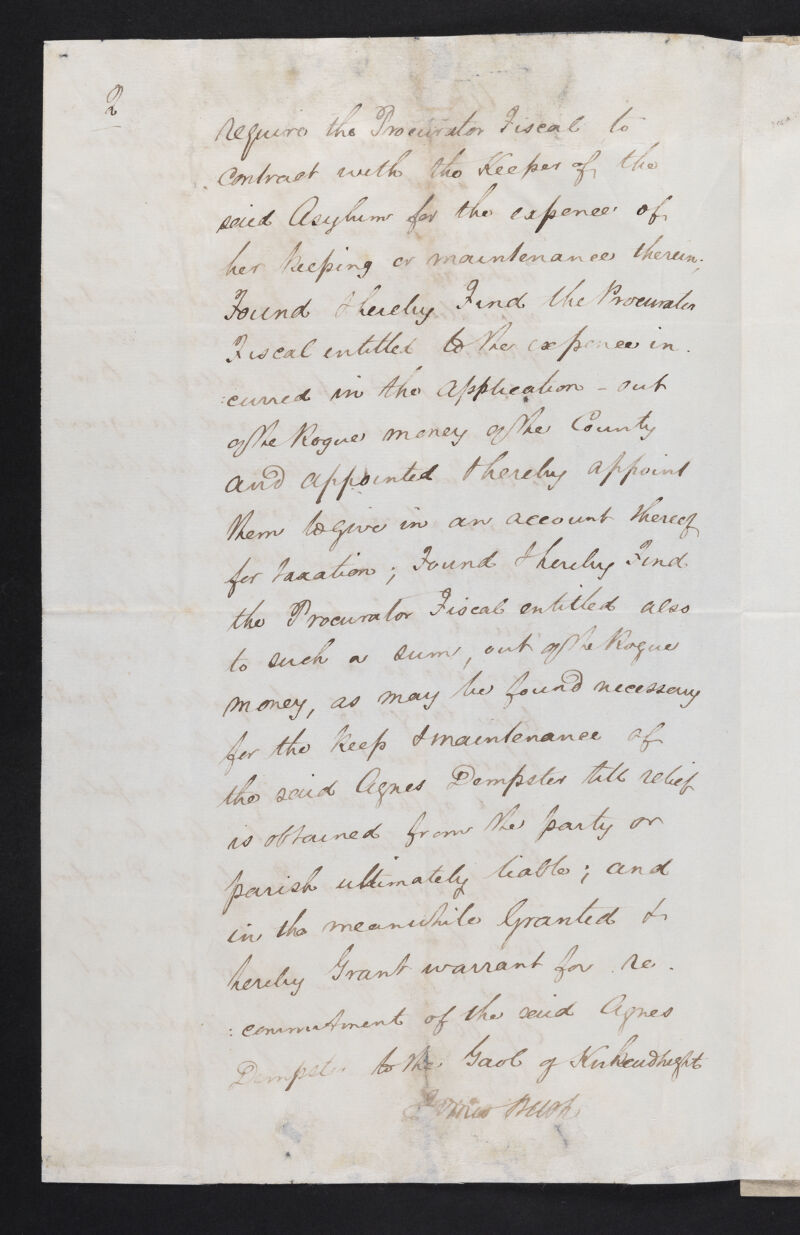 2
require the Procurator Fiscal to
contract with the Keeper of the
said Asylum for the expence of
her keeping or maintenance therein;
Found & hereby Find the Procurator
Fiscal entitled to the expence in-
:curred in the application - out
of the Rogue money of the County
and appointed & hereby appoint
them to give in an account thereof
for taxation; Found & hereby Find
the Procurator Fiscal entitled also
to such a sum, out of the Rogue
money, as may be found necessary
for the keep & maintenance of
the said Agnes Dempster till relief
is obtained from the party or
parish ultimately liable; and
in the meanwhile Granted &
hereby Grant warrant for re-
:commitment of the said Agnes
Dempster to the Gaol of Kirkcudbright